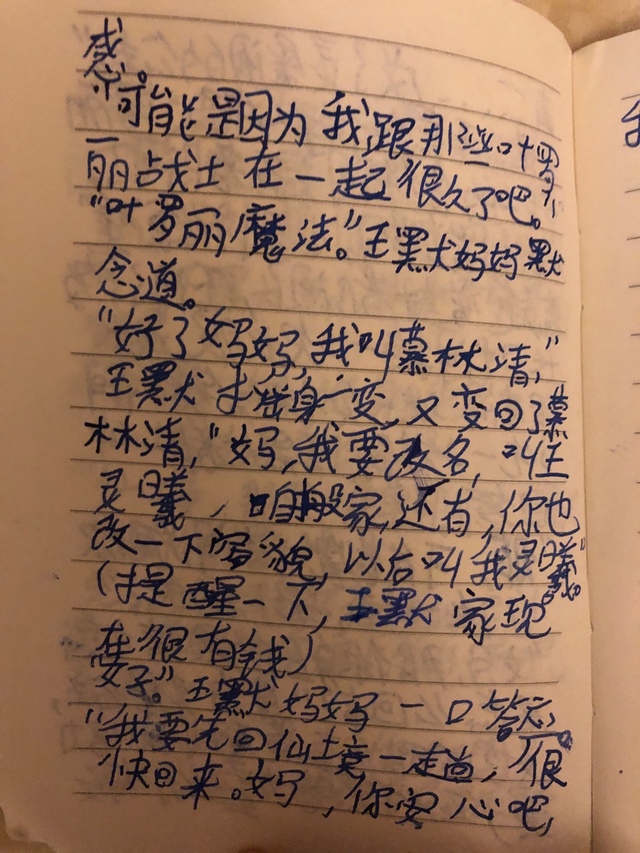 感
可能是因为我跟那些叶罗
丽战士在一起很久了吧。
“叶罗丽魔法。”王默妈妈默
念道。
“好了妈妈,我叫慕林清,”
王默摇身一变,又变回了慕
林清,“妈,我要改名,叫王
灵曦,咱搬家,还有,你也
改一下容貌,以后叫我灵曦”
(提醒一下,王默家现
在很有钱)
好。”王默妈妈一口答应。
“我要先回仙境一走道,很
快回来。妈,你安心吧,